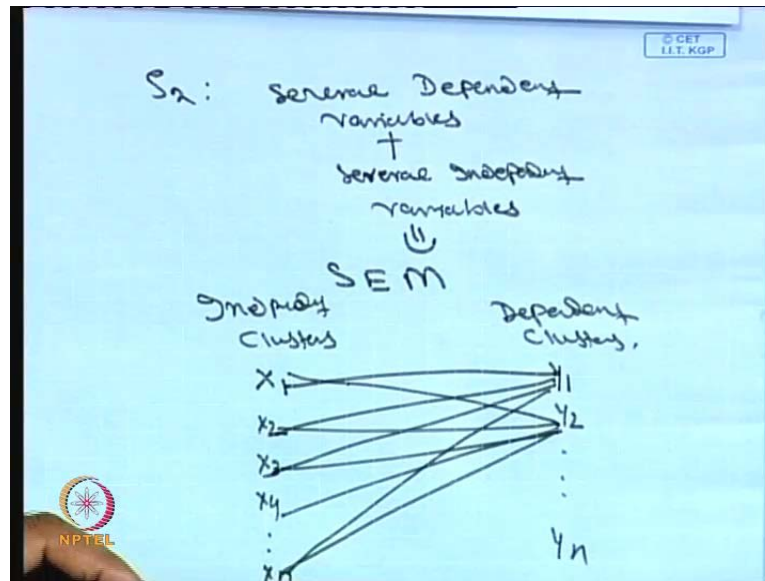 © CET
I.I.T. KGP
S2: Several Dependent
variables
+
several Independent
variables
SEM
Independent Dependent
Clusters Clusters.
X1 Y1
X2 Y2
X3 .
X4 .
: .
Xn Yn
NPTEL